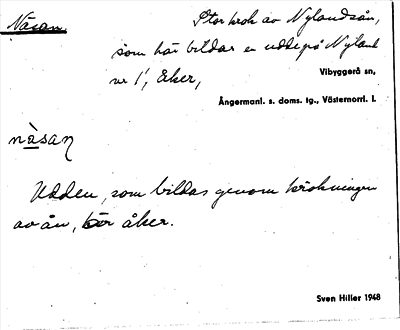 Näsan
Stor krok av Nylandsån,
som här bildar en udde på Nyland
nr 1, Åker,
Vibyggerå sn,
Ångermanl. s. doms. tg., Västernorrl. l.
nàsaŋ
Udden, som bildas genom krökningen
av ån, är åker.
Sven Hiller 1948